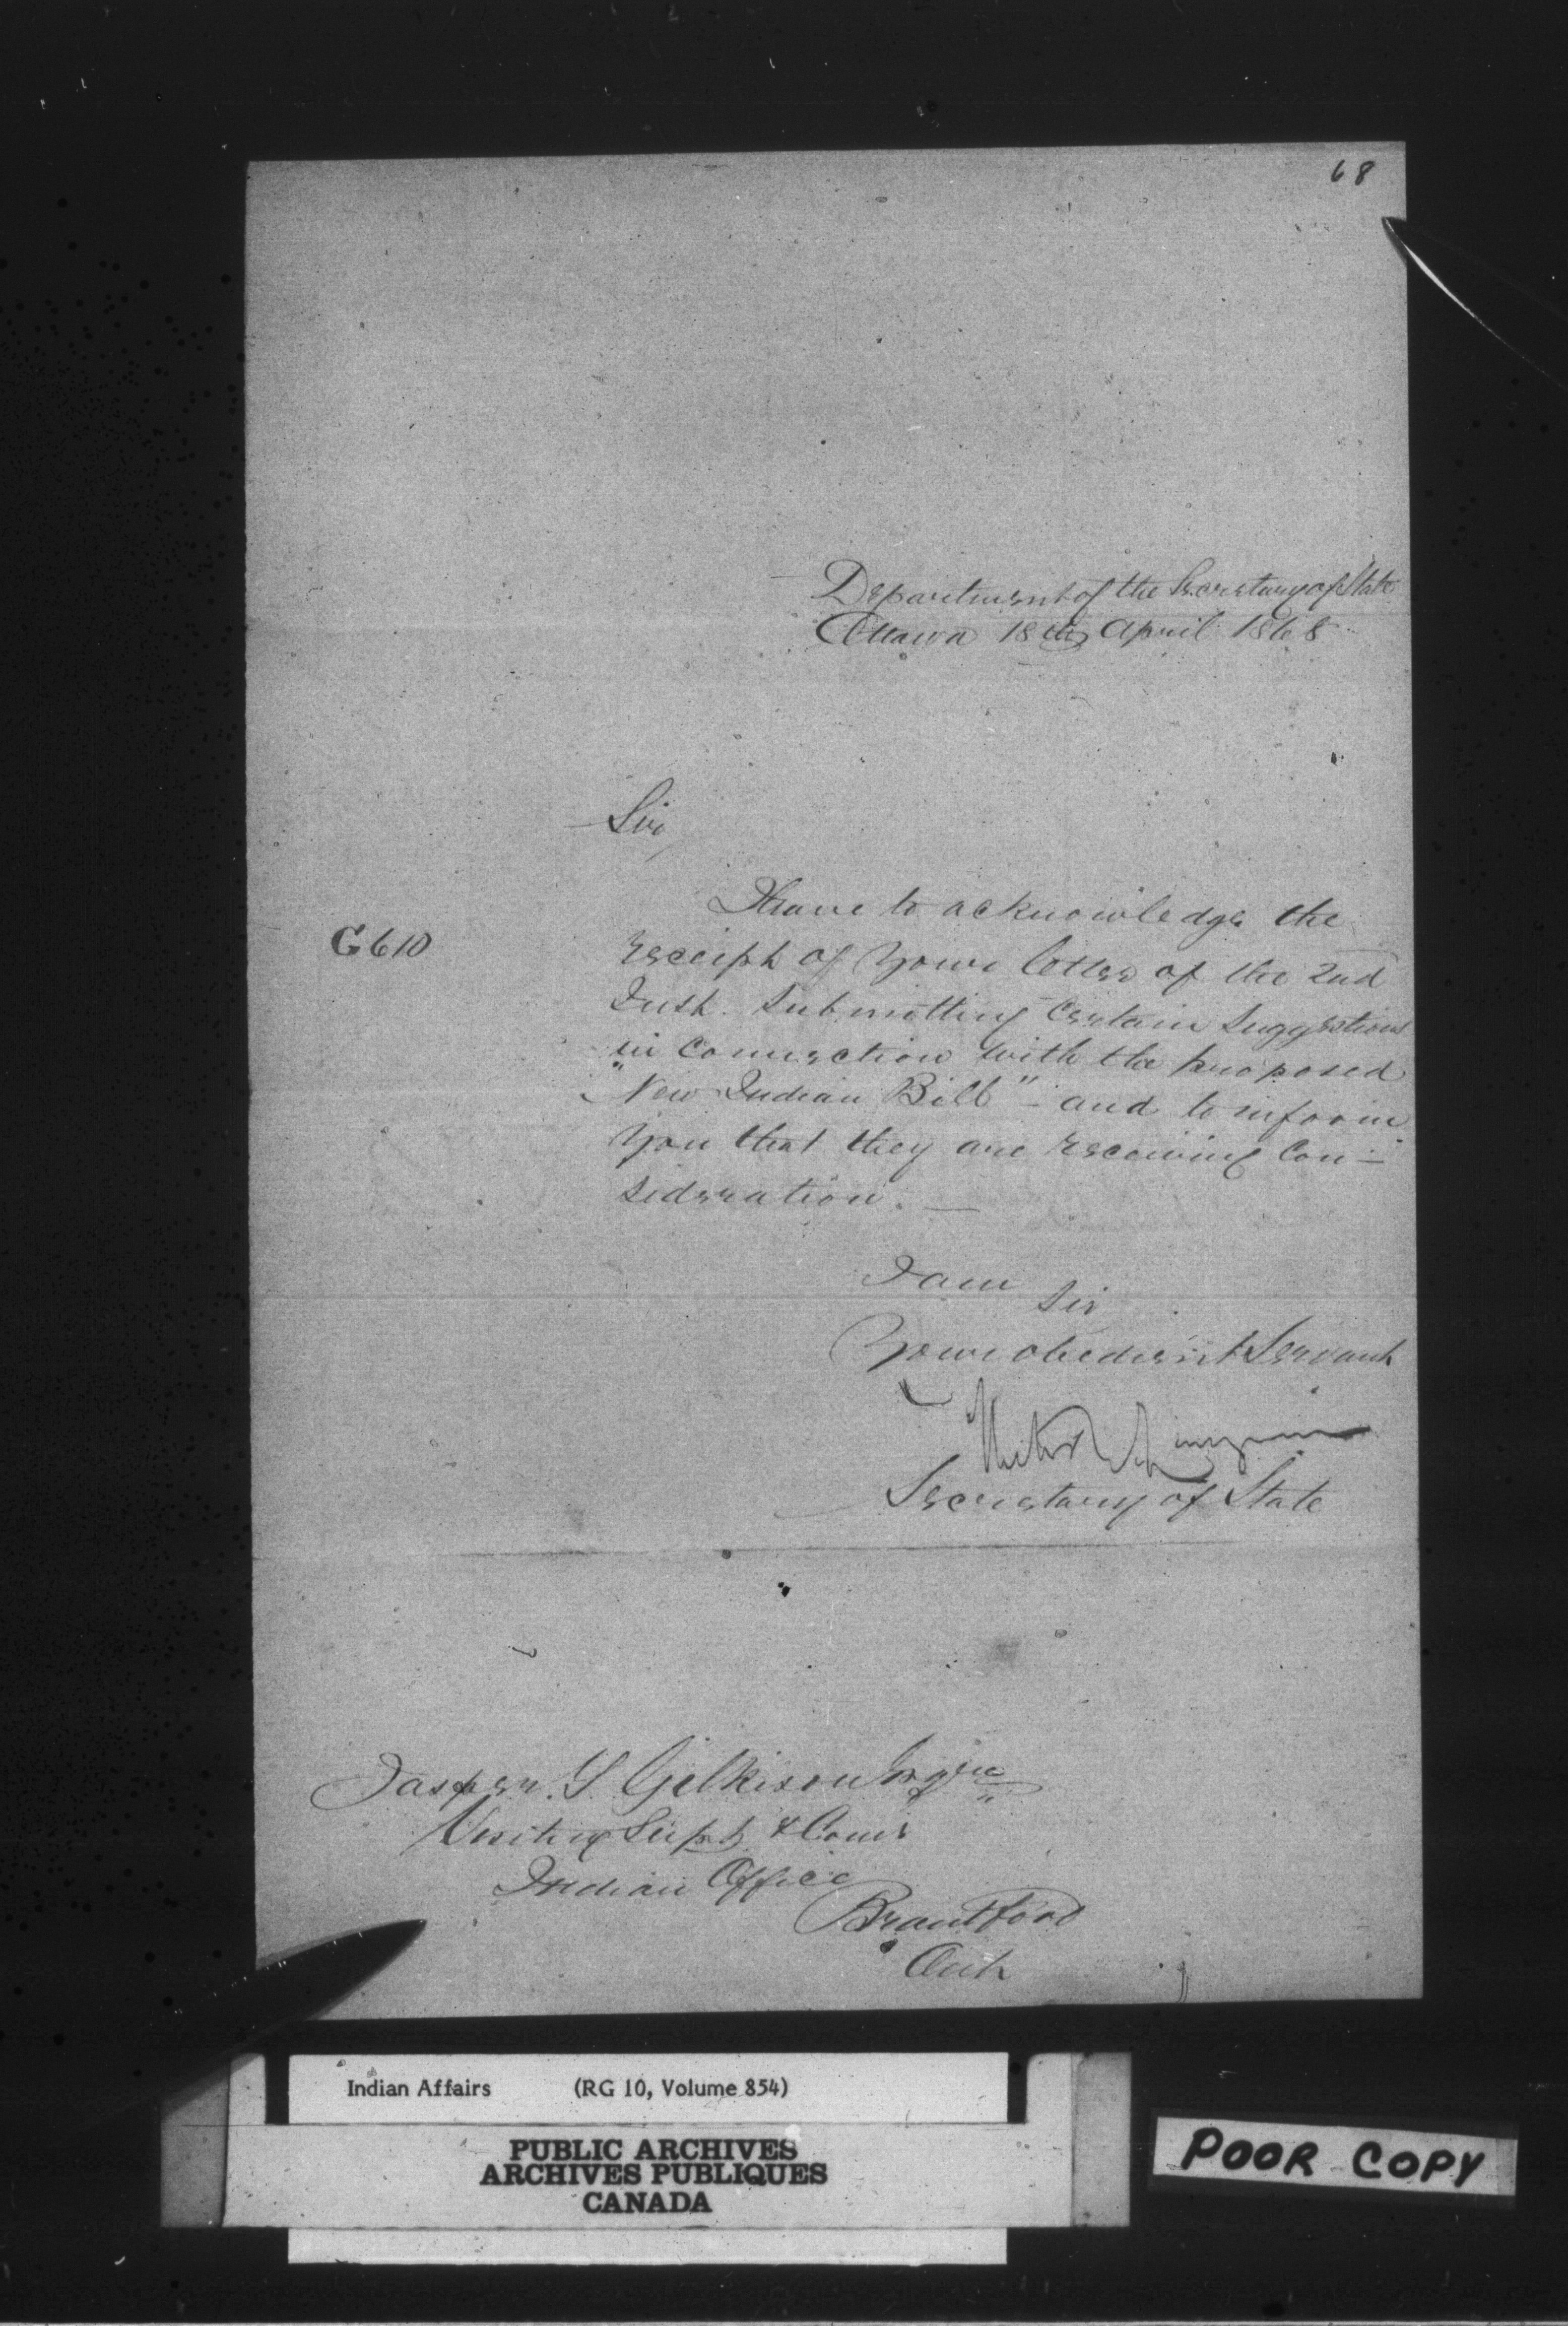 68
Department of the Secretary of State
Ottawa 18th April 1868
Sir
I have to acknowledge the
G 610
receipt of your letter of the 2nd
Inst. submitting certain suggestions
in connection with the proposed
"New Indian Bill" - and to inform
you that they are receiving con-
sideration. —
I am
Sir
Your obedient Servant
Hector L. Langevin
Secretary of State
Jasper T Gilkison Esquire
Visiting Supt & Comr
Indian Office
Brantford
Ont
Indian Affairs (RG 10, Volume 854)
PUBLIC ARCHIVES
ARCHIVES PUBLIQUES
CANADA
POOR COPY